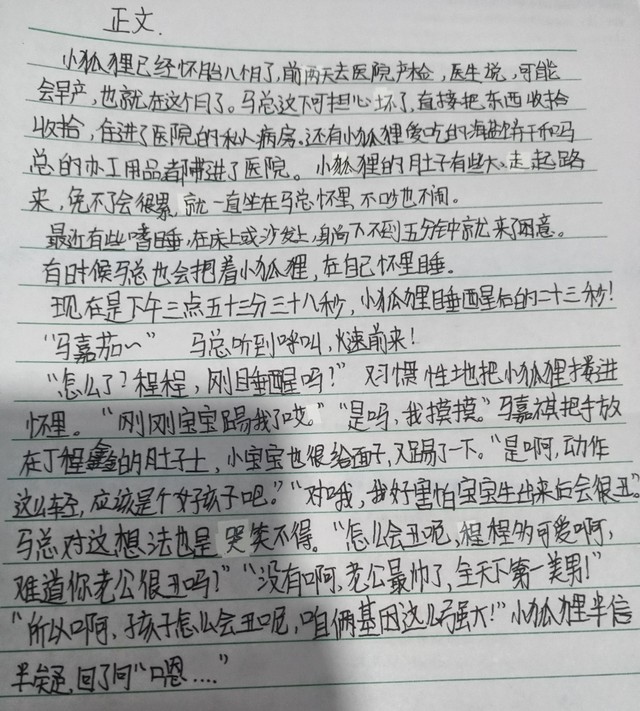 正文.
小狐狸已经怀胎八个月了,前两天去医院产检,医生说,可能
会早产,也就在这个月了。马总这下可担心坏了,直接把东西收拾
收拾,住进了医院的私人病房.还有小狐狸爱吃的海盐饼干和马
总的办工用品都带进了医院。小狐狸的肚子有些大,走起路
来,免不了会很累 就一直坐在马总怀里,不吵也不闹。
最近有些嗜睡,在床上或沙发上,身ⁿ下不到五分钟就来了困意。
有时候马总也会抱着小狐狸,在自己怀里睡。
现在是下午三点五十三分三十八秒,小狐狸睡醒后的二十三秒!
“马嘉茄~” 马总听到呼叫,火速前来!
“怎么了?程程,刚睡醒吗?” 习惯性地把小狐狸搂进
怀里。“刚刚宝宝踢我了哎”“是吗,我摸摸。”马嘉祺把手放
在丁程鑫的肚子上,小宝宝也很给面子,又踢了一下。“是啊,动作
这么轻,应该是个好孩子吧?”“对哦,我好害怕宝宝生出来后会很丑”
马总对这想法也是哭笑不得。“怎么会丑呢,程程多可爱啊,
难道你老公很丑吗?”“没有啊,老公最帅了,全天下第一美男!”
“所以啊,孩子怎么会丑呢,咱俩基因这么强大!”小狐狸半信
半疑,回了句“嗯....”